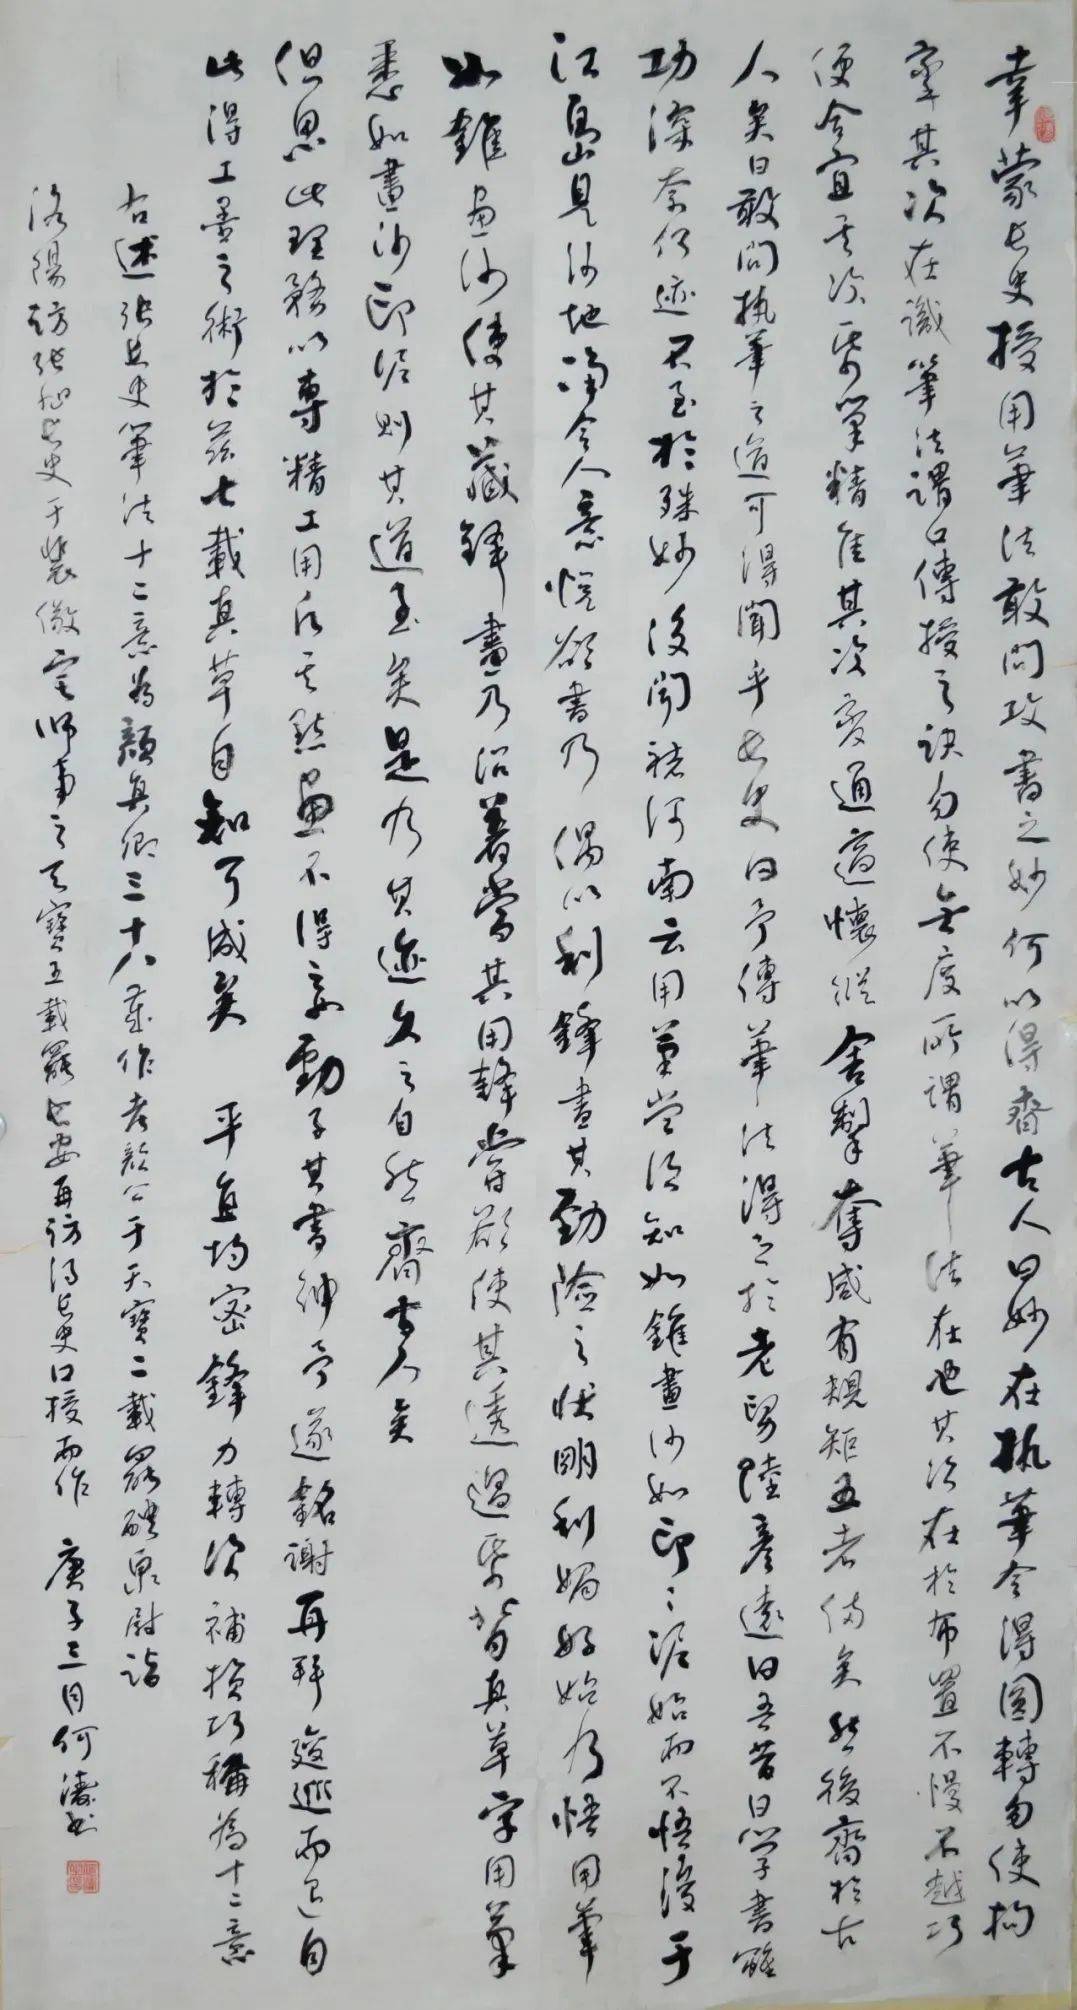 幸蒙長史授用筆法敢問攻書之妙何以得齊古人曰妙在執筆令得圓轉勿使拘
攣其次在識筆法謂口傳授之訣勿使無度所謂筆法在也其次在於布置不慢不越巧
便合宜其次紙筆精佳其次變通適懷縱舍掣奪咸有規矩五者備矣然後齊於古
人矣曰敢問執筆之道可得聞乎長史曰予傳筆法得之於老舅陸彥遠曰吾昔日學書雖
功深奈何迹不至於殊妙後聞褚河南云用筆當須知如錐畫沙如印印泥始而不悟後于
江島見沙地淨令人意悅欲書乃偶以利鋒畫其勁險之狀明利媚好始乃悟用筆
如錐畫沙使其藏鋒畫乃沉著當其用鋒常欲使其透過紙背真草字用筆
悉如畫沙印泥則其道至矣是乃其迹久之自然齊古人矣
但思此理務以專精工用故其點畫不得妄動子其書紳予遂銘謝再拜逡巡而退自
此得工墨之術於茲七載真草自知可成矣 平直均密鋒力轉決補損巧稱為十二意
右述張長史筆法十二意為顏真卿三十八歲作考顏公于天寶二載罷醴泉尉詣
洛陽訪張旭長史于裴儆宅師事之天寶五載罷長安再訪得長史口授而作 庚子三月何濤書